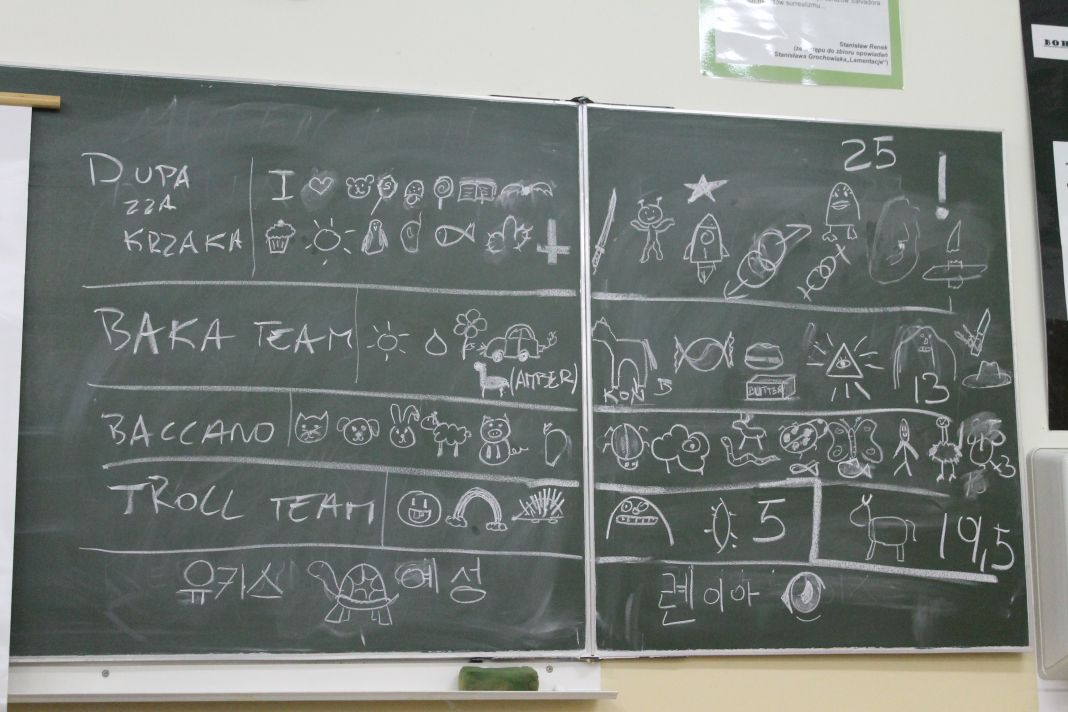 surrealizmu...
Stanisław Renek
(ze wstępu do zbioru opowiadań
Stanisława Grochowiaka „Lamentacje”)
DUPA
ZZA
KRZAKA
I
25 !
BAKA TEAM
(AMBER)
KOŃ
BUTTER
13
BACCANO
x3
TROLL TEAM
5
19,5
유키스
예성
렌이아